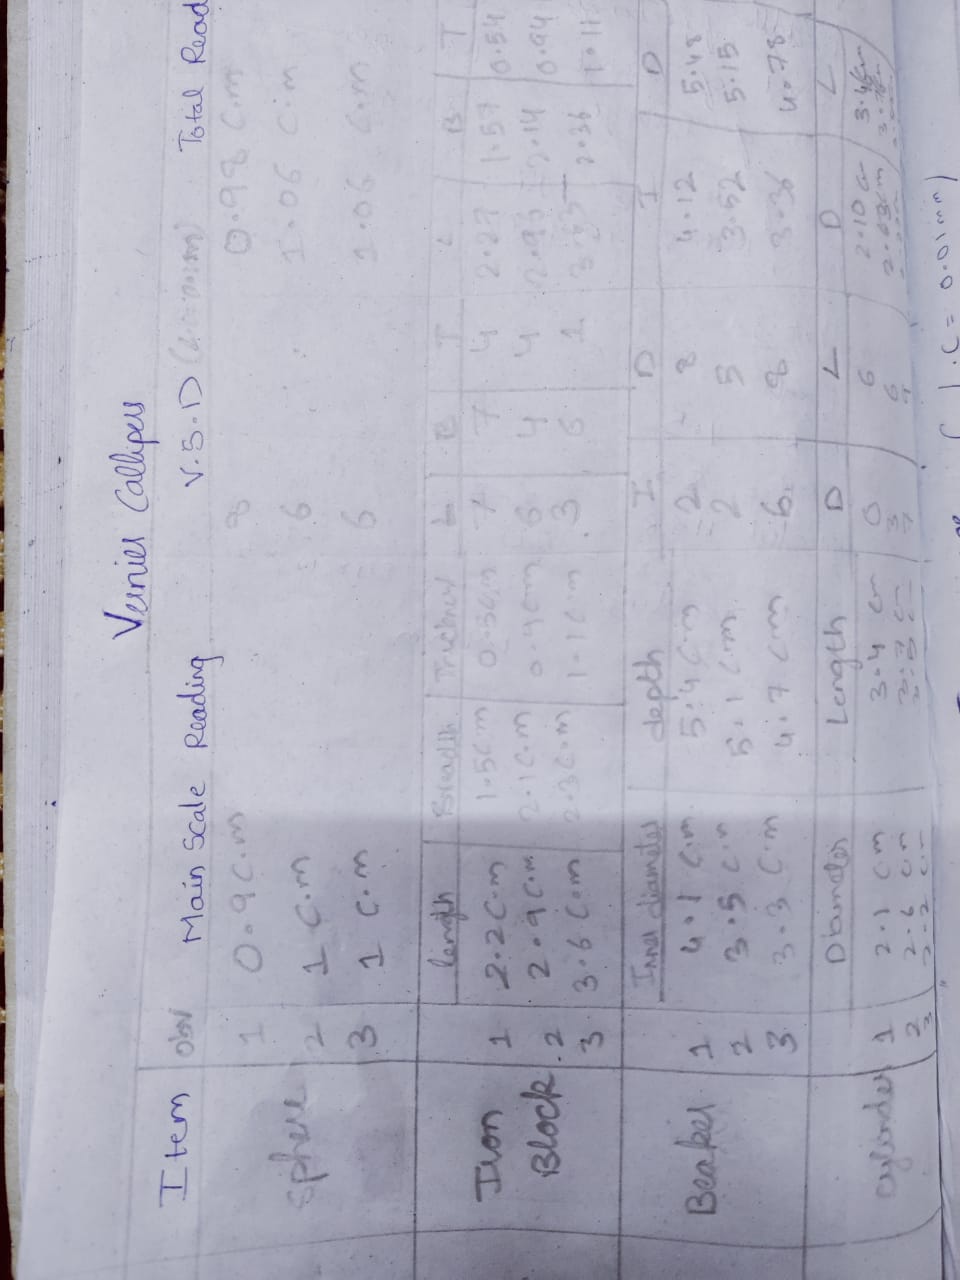 Vernier Callipers
Item Obsv Main Scale Reading V.S.D Total Read
Sphere 1 0.9 C.m 8 0.98 C.m
2 1 C.m 6 1.06 C.m
3 1 C.m 6 1.06 C.m
length Breadth Thickness L B T L B T
Iron Block 1 2.2 C.m 1.5 C.m 0.5 C.m 7 7 4 2.27 1.57 0.54
2 2.9 C.m 2.1 C.m 0.9 C.m 6 4 4 2.96 2.14 0.94
3 3.6 C.m 2.3 C.m 1.1 C.m 3 6 1 3.63 2.36 1.11
Inner diameter depth I D I D
Beaker 1 4.1 C.m 5.4 C.m 2 8 4.12 5.48
2 3.5 C.m 5.1 C.m 2 5 3.52 5.15
3 3.3 C.m 4.7 C.m 6 8 3.36 4.78
Diameter Length D L D L
Cylinder 1 2.1 C.m 3.4 cm 0 6 2.10 cm 3.46 cm
2 2.6 cm 3 6 2.63cm
3 7
L.C = 0.01mm)